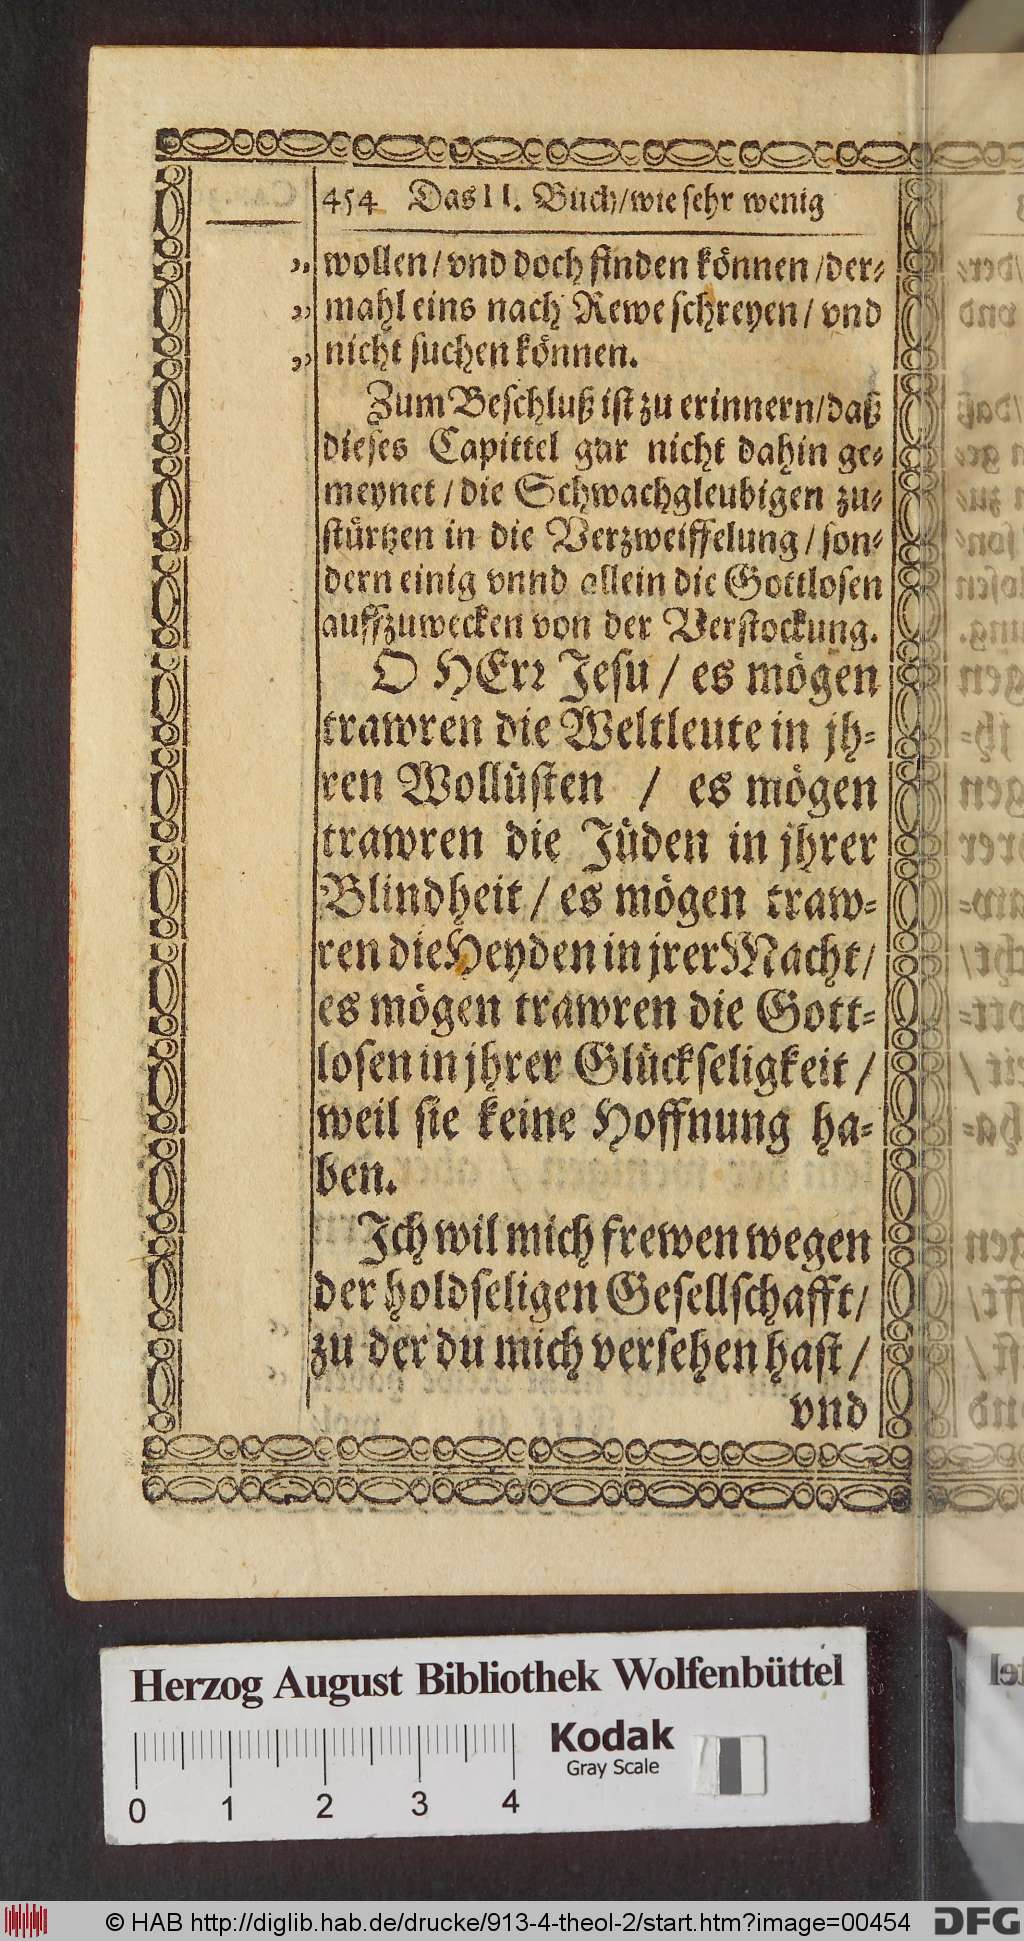 454 Das II. Buch/wie sehr wenig
„ wollen/vnd doch finden können/der-
„ mahl eins nach Rewe schreyen/vnd
„ nicht suchen können.
Zum Beschluß ist zu erinnern/daß
dieses Capittel gar nicht dahin ge-
meynet/die Schwachgleubigen zu-
stürtzen in die Verzweiffelung/son-
dern einig vnnd allein die Gottlosen
auffzuwecken von der Verstockung.
O HErr Jesu/es mögen
trawren die Weltleute in jh-
ren Wollüsten / es mögen
trawren die Jüden in jhrer
Blindheit/es mögen traw-
ren die Heyden in jrer Macht/
es mögen trawren die Gott-
losen in jhrer Glückseligkeit/
weil sie keine Hoffnung ha-
ben.
Ich wil mich frewen wegen
der holdseligen Gesellschafft/
zu der du mich versehen hast/
vnd
Herzog August Bibliothek Wolfenbüttel
Kodak
Gray Scale
0 1 2 3 4
© HAB http://diglib.hab.de/drucke/913-4-theol-2/start.htm?image=00454 DFG